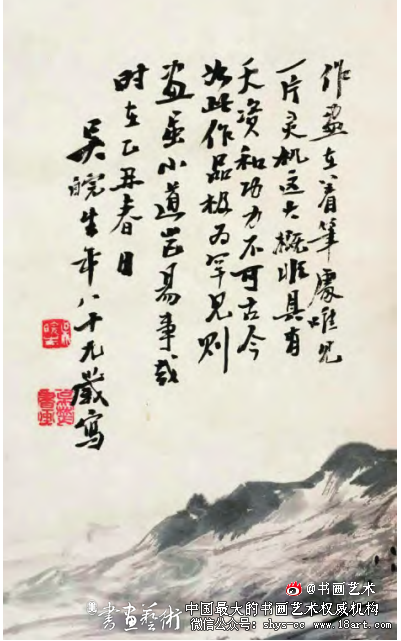 作畫在着筆處唯见
一片灵机这大概非具有
天资和功力不可古今
如此作品极为罕见则
畫虽小道岂易事哉
时在乙丑春日
吴皖生年八十九歲寫
@书画艺术
書畫藝術
中国最大的书画艺术权威机构
微信公众号：shys-cc www.18art.com